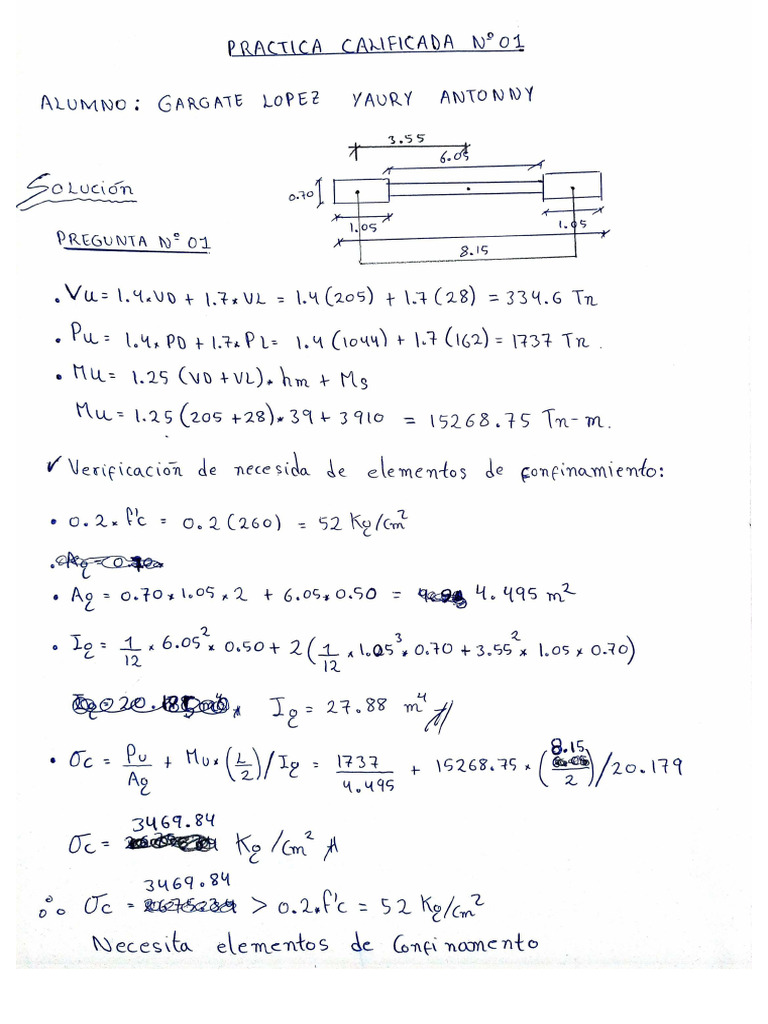 PRACTICA CALIFICADA N°01
ALUMNO: GARGATE LOPEZ YAURY ANTONNY
3.55
6.05
SOLUCIÓN
0.70
1.05
1.05
PREGUNTA N°01
8.15
• Vu = 1.4*VD + 1.7*VL = 1.4(205) + 1.7(28) = 334.6 Tn
• Pu = 1.4*PD + 1.7*PL = 1.4(1044) + 1.7(162) = 1737 Tn.
• Mu = 1.25(VD+VL)*hm + Ms
Mu = 1.25(205+28)*39 + 3910 = 15268.75 Tn-m.
✓ Verificación de necesida de elementos de confinamiento:
• 0.2*f'c = 0.2(260) = 52 Kg/cm²
• Ag = 0.70*1.05*2 + 6.05*0.50 = 4.495 m²
• Ig = 1/12 * 6.05² * 0.50 + 2(1/12 * 1.05³ * 0.70 + 3.55² * 1.05 * 0.70)
Ig = 27.88 m⁴
• σc = Pu/Ag + Mu*(L/2)/Ig = 1737/4.495 + 15268.75*(8.15/2)/20.179
σc = 3469.84 Kg/cm²
∴ σc = 3469.84 > 0.2*f'c = 52 Kg/cm²
Necesita elementos de Confinamento